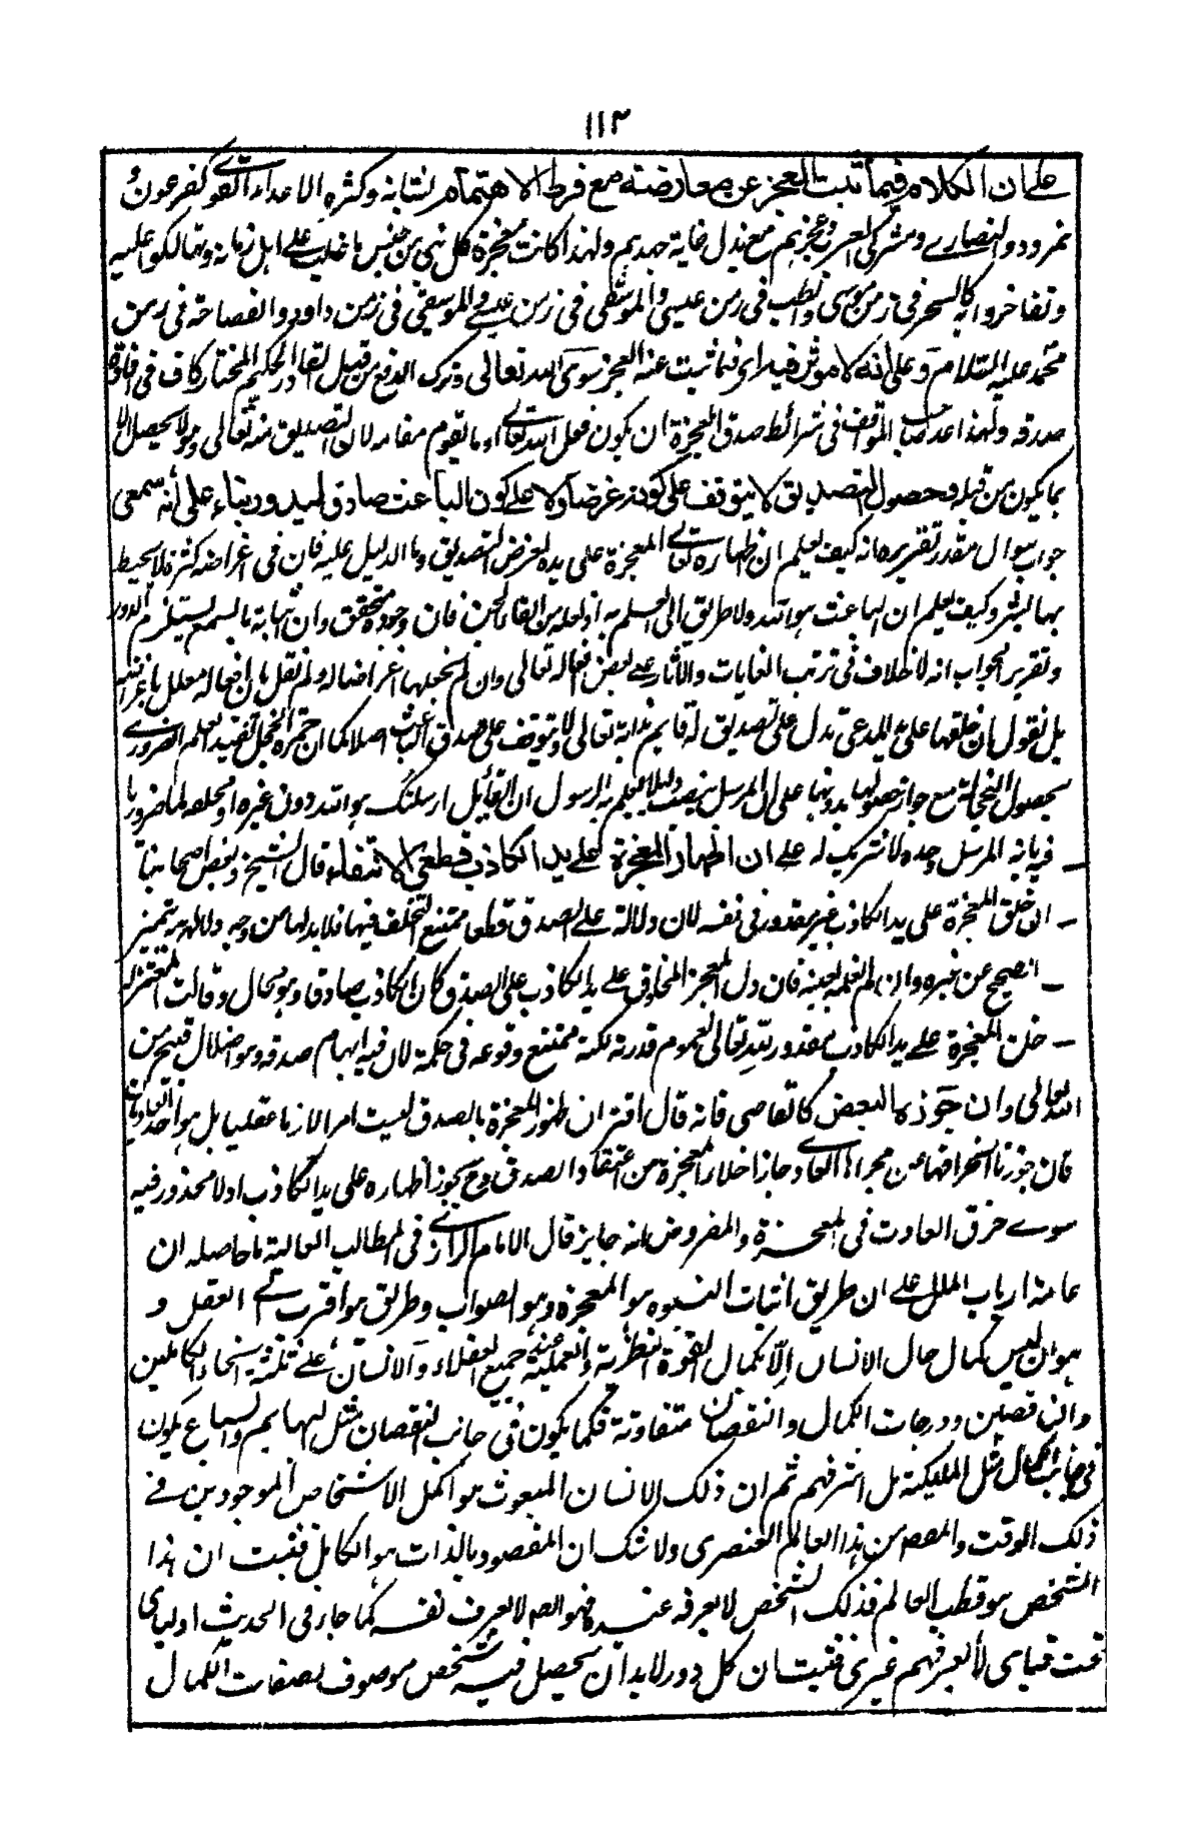 ١١٣
على ان الكلام فيما ثبت العجز عن معارضته مع فرط الاهتمام لشانه وكثرة الاعداء القوى كفرعون و
نمرود والنصارے ومشركى العرب وعجزهم مع بذل غاية جهدهم ولهذا كانت معجزة كل نبى من جنس ما غلب على اهل زمانه وتهالكوا عليه
وتفاخروا به كالسحر فى زمن موسى والطب فى زمن عيسى والموسيقى فى زمن داود والفصاحة فى زمن
محمد عليه السلام وعلى انه لا موثر فيه اى فيما ثبت عنه العجز سوى الله تعالى وترك الدفع من قبل القادر الحكيم المختار كاف فى افادة
صدقه ولهذا عد صاحب المواقف فى شرائط صدق المعجزة ان يكون فعل الله تعالى او ما يقوم مقامه لان التصديق منه تعالى وهو لا يحصل الا
بما يكون من قبله وحصول التصديق لا يتوقف على كونه غرضا ولا على كون الباعث صادقا ليدور بناء على أنه سمعى
جواب سوال مقدر تقريره انه كيف يعلم ان اظهاره تعالى المعجزة على يده لغرض التصديق وما الدليل عليه فان فى اغراضه كثرة فلا يحيط
بها البشر وكيف يعلم ان الباعث هو الله ولا طريق الى العلم به اذ لعله من القاء الجن فان وجوده متحقق وان اثباته بالسمع يستلزم الدور
وتقرير الجواب انه لا خلاف فى ترتب الغايات والآثار على بعض افعاله تعالى وان لم نجعلها اغراضا له ولم نقل بان افعاله معلل باغراض
بل نقول بان خلقها على يد المدعى تدل على تصديق له قايم بذاته تعالى ولا يتوقف على صدق الباعث اصلا كما ان حمرة الخجل تفيد العلم الضرورى
بحصول الخجالة مع جواز حصولها بدونها على ان المرسل ينصب دليلا يعلم به الرسول ان القائل ارسلتك هو الله دون غيره او يخلق علما ضروريا
فيه بانه المرسل وحده لا شريك له على ان اظهار المعجزة على يد الكاذب قطعى الانتفاء قال الشيخ وبعض اصحابنا
ان خلق المعجزة على يد الكاذب غير مقدور فى نفسه لان دلالة على الصدق قطعا ممتنع التخلف فيها فلا بد لها من وجه دلالة به يتميز
الصحيح عن غيره وان لم نعلمه بعينه فان دل المعجز المخلوق على يد الكاذب على الصدق كان الكاذب صادقا وهو محال وقالت المعتزلة
خلق المعجزة على يد الكاذب مقدور لله تعالى لعموم قدرته لكنه ممتنع وقوعه فى حكمة لان فيه ايهام صدقه وهو اضلال قبيح من
الله تعالى وان جوزه البعض كالقاضى فانه قال اقتران ظهور المعجزة بالصدق ليست امرا لازما عقليا بل هو احد العاديات
فان جوزنا انخراقها عن مجراه العادى جاز اخلاء المعجزة من اعتقاد الصدق وح يجوز اظهاره على يد الكاذب اذ لا محذور فيه
سوے خرق العادت فى المعجزة والمفروض انه جايز قال الامام الرازے فى المطالب العالية ما حاصله ان
عامة ارباب الملل على ان طريق اثبات النبوه هو المعجزة وهو الصواب وطريق هو اقرب الى العقل و
هو ان ليس كمال حال الانسان الّا بكمال القوة النظرية والعملية عند جميع العقلاء والانسان على ثلثة انحاء الكاملين
والناقصين ودرجات الكمال والنقصان متفاوتة فكما يكون فى جانب النقصان مثل البهايم والسباع يكون
فى جانب الكمال مثل المليكة بل اشرفهم ثم ان ذلك الانسان المبعوث هو اكمل الاشخاص الموجودين فے
ذلك الوقت والعصر من هذا العالم العنصرى ولا شك ان المقصود بالذات هو الكامل فثبت ان هذا
الشخص هو قطب العالم فذلك الشخص لا يعرفه غيره فهو العصر لا يعرف نفسه كما جاء فى الحديث اوليائى
تحت قبابى لا يعرفهم غيرى فثبت ان كل دور لا بد ان يحصل فيه شخص موصوف بصفات الكمال